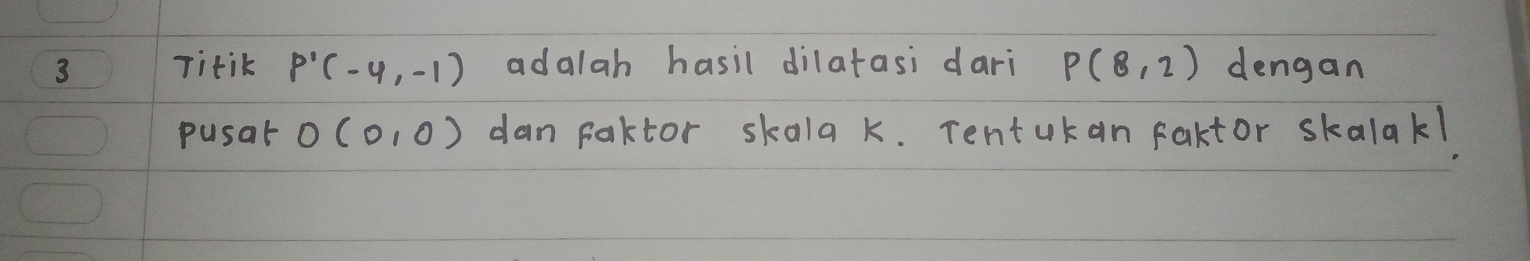 3 Titik P'(-4,-1) adalah hasil dilatasi dari P(8,2) dengan
pusat O(0,0) dan faktor skala K. Tentukan faktor skala k!